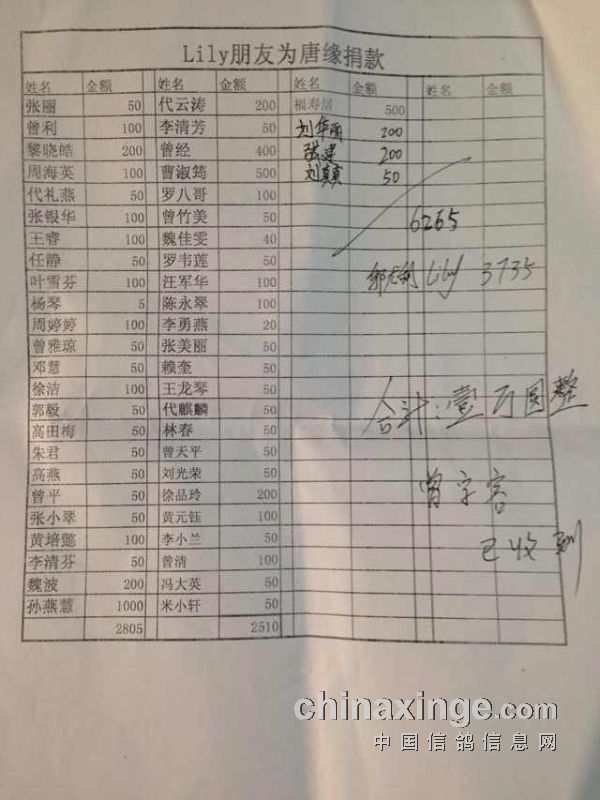 Lily朋友为唐缘捐款
姓名 金额 姓名 金额 姓名 金额 姓名 金额
张丽 50 代云涛 200 福寿居 500
曾利 100 李清芳 50 刘华丽 200
黎晓皓 200 曾经 400 张建 200
周海英 100 曹淑筠 500 刘真真 50
代礼燕 50 罗八哥 100
张银华 100 曾竹美 50 6265
王睿 100 魏佳雯 40
任静 50 罗韦莲 50 Lily 3735
叶雪芬 100 汪军华 100
杨琴 5 陈永翠 100
周婷婷 100 李勇燕 20
曾雅琼 50 张美丽 50
邓慧 50 赖奎 50
徐洁 100 王龙琴 50
郭毅 50 代麒麟 50 合计:壹万圆整
高田梅 50 林春 50
朱君 50 曾天平 50
高燕 50 刘光荣 50
曾平 50 徐品玲 200 曾字容
张小翠 50 黄元钰 100
黄培懿 100 李小兰 50 已收到
李清芬 50 曾清 100
魏波 200 冯大英 50
孙燕慧 1000 米小轩 50
2805 2510
chinaxinge.com
中国信鸽信息网